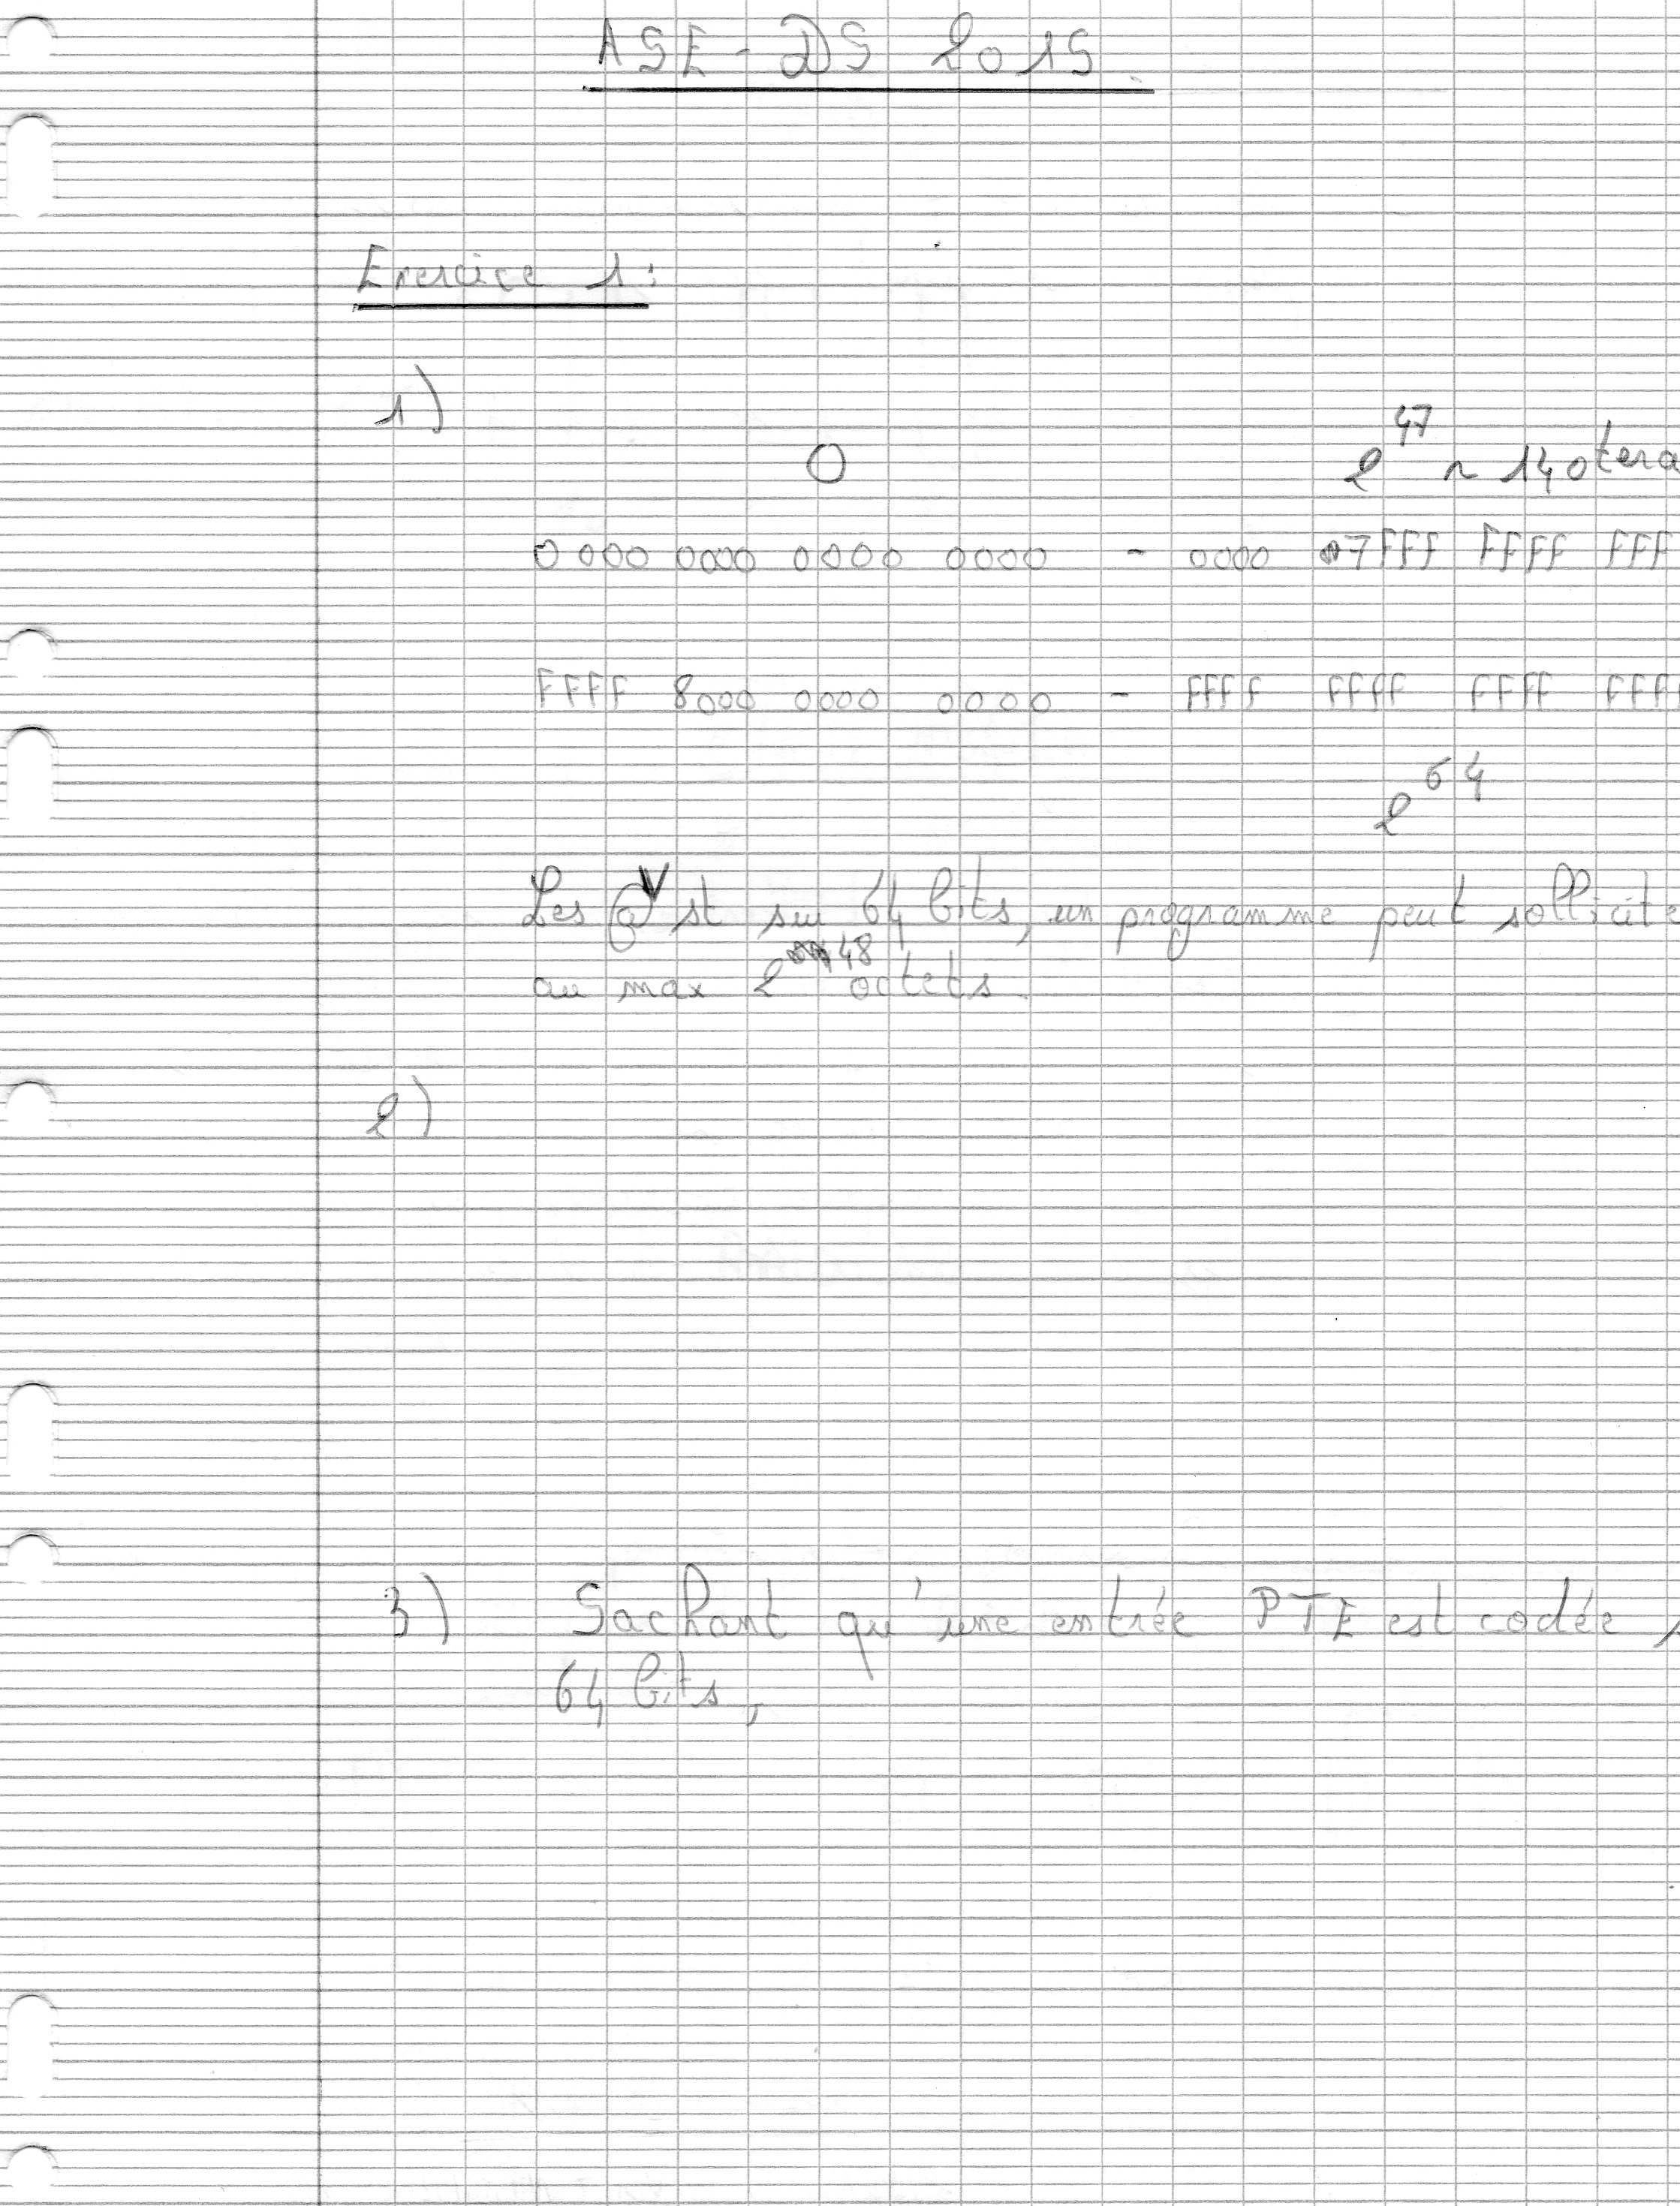 ASE - DS 2015
Exercice 1:
1)
0 2^47 ~ 140 tera
0000 0000 0000 0000 - 0000 7FFF FFFF FFF
FFFF 8000 0000 0000 - FFFF FFFF FFFF FFFF
2^64
Les @V st sur 64 bits, un programme peut sollicite
au max 2^48 octets.
2)
3) Sachant qu'une entrée PTE est codée s
64 bits,